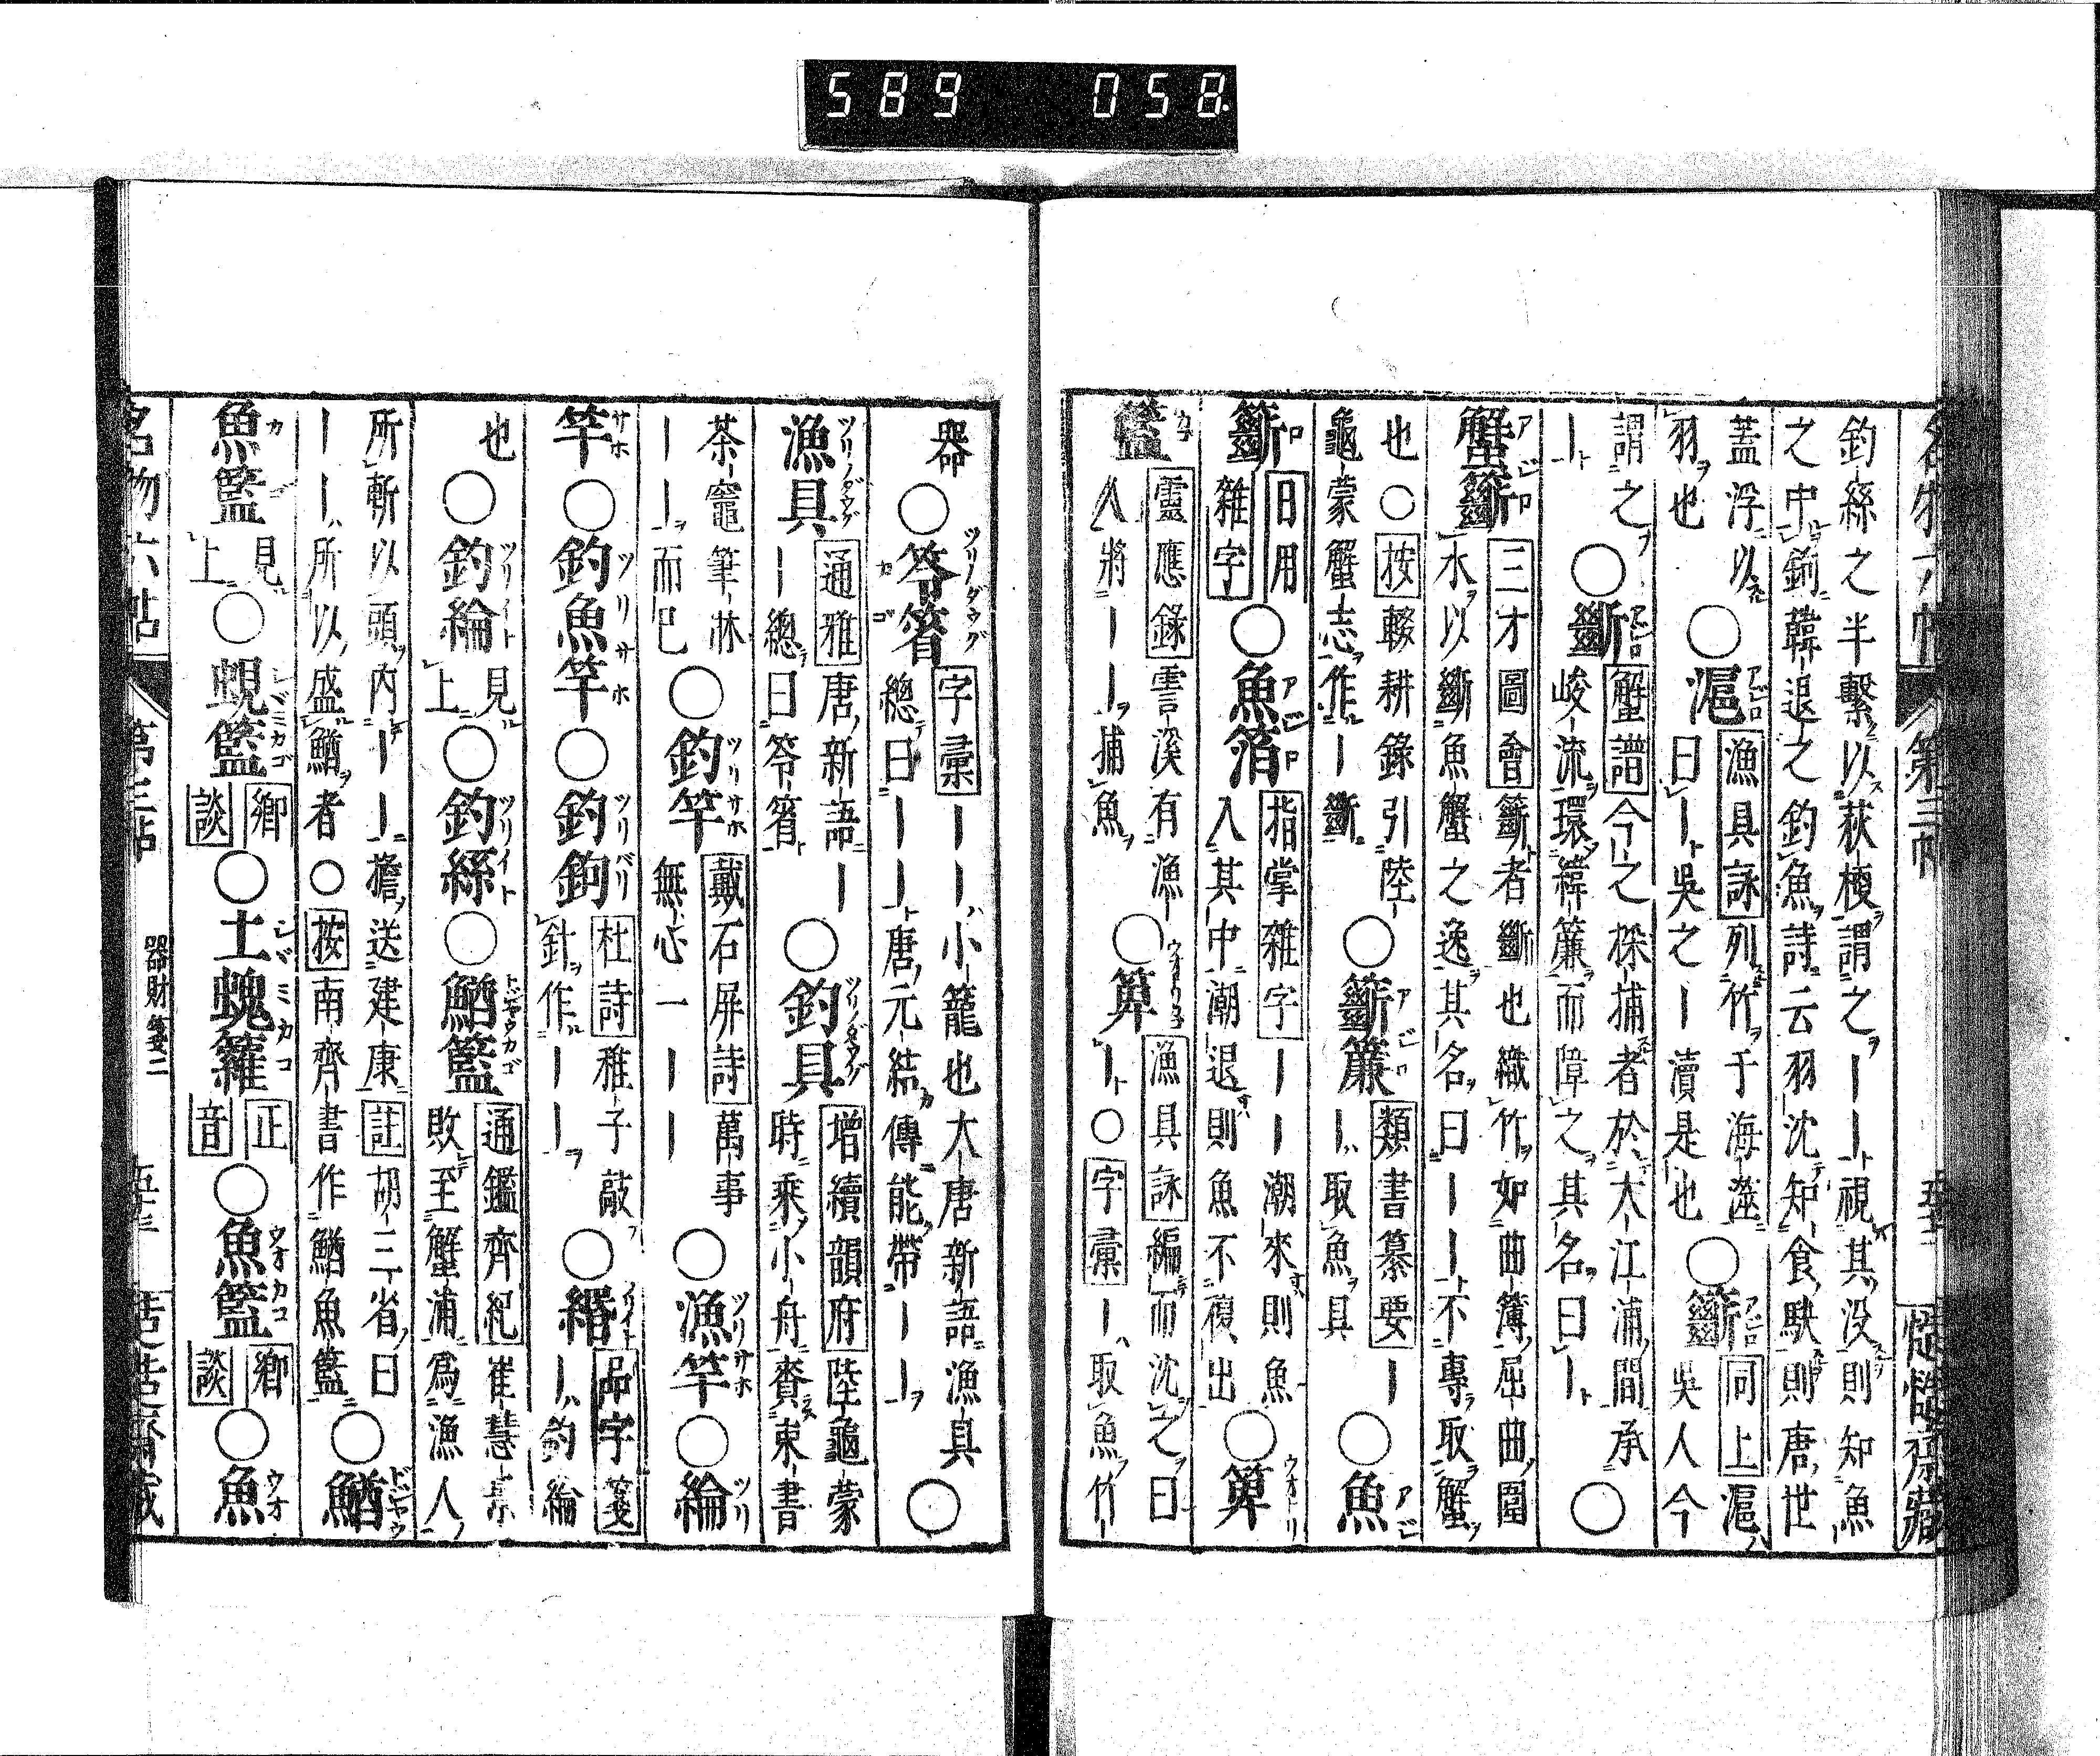 589 058
釣絲之半繫以荻梗謂之｜｜視其没則知魚
之中鉤韓退之釣魚詩云羽沈知食駃則唐世
蓋浮以
羽也
○滬
漁具詠 列竹于海澨
曰｜吳之｜瀆是也
○籪
同上 滬
吳人今
謂之
｜
○斷
蟹譜 今之採捕者於大江浦間承
峻流環緯簾而障之其名曰｜
○
蟹籪
三才圖會 籪者斷也織竹如曲簿屈曲圍
水以斷魚蟹之逸其名曰｜｜不專取蟹
也○按輟耕錄引陸
龜蒙蟹志作｜斷
○籪簾
類書纂要 ｜
｜取魚具
○魚
籪
日用
雜字
○魚箔
指掌雜字 ｜｜潮來則魚
入其中潮退則魚不復出
○箄
籃
靈應錄 霅溪有漁
人將｜｜捕魚
○箄
漁具詠 編而沈之曰
｜○字彙 ｜取魚竹
器
○笭箵
字彙 ｜｜小籠也大唐新語漁具
總曰｜｜唐元結傳能帶｜｜
○
漁具
通雅 唐新語｜
｜總曰笭箵
○釣具
增續韻府 陸龜蒙
時乘小舟賚束書
茶竈筆牀
｜｜而已
○釣竿
戴石屏詩 萬事
無心一｜｜
○漁竿○綸
竿○釣魚竿○釣鉤
杜詩 稚子敲
針作｜｜
○緡
品字箋
｜釣綸
也
○釣綸
見
上
○釣絲○鰌籃
通鑑齊紀 崔慧景
敗至蟹浦爲漁人
所斬以頭内｜｜擔送建康註胡三省曰
｜｜所以盛鰌者○按南齊書作鰌魚籃
○鰌
魚籃
見
上
○蜆籃
鄉
談
○土螝籮
正
音
○魚籃
鄉
談
○魚
名物六帖 第三帖 器財箋二